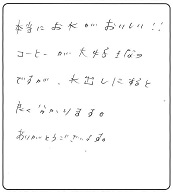 本当にお水がおいしい!!
コーヒーが大好きなの
ですが、水出しにすると
良く分かります。
ありがとうございます。